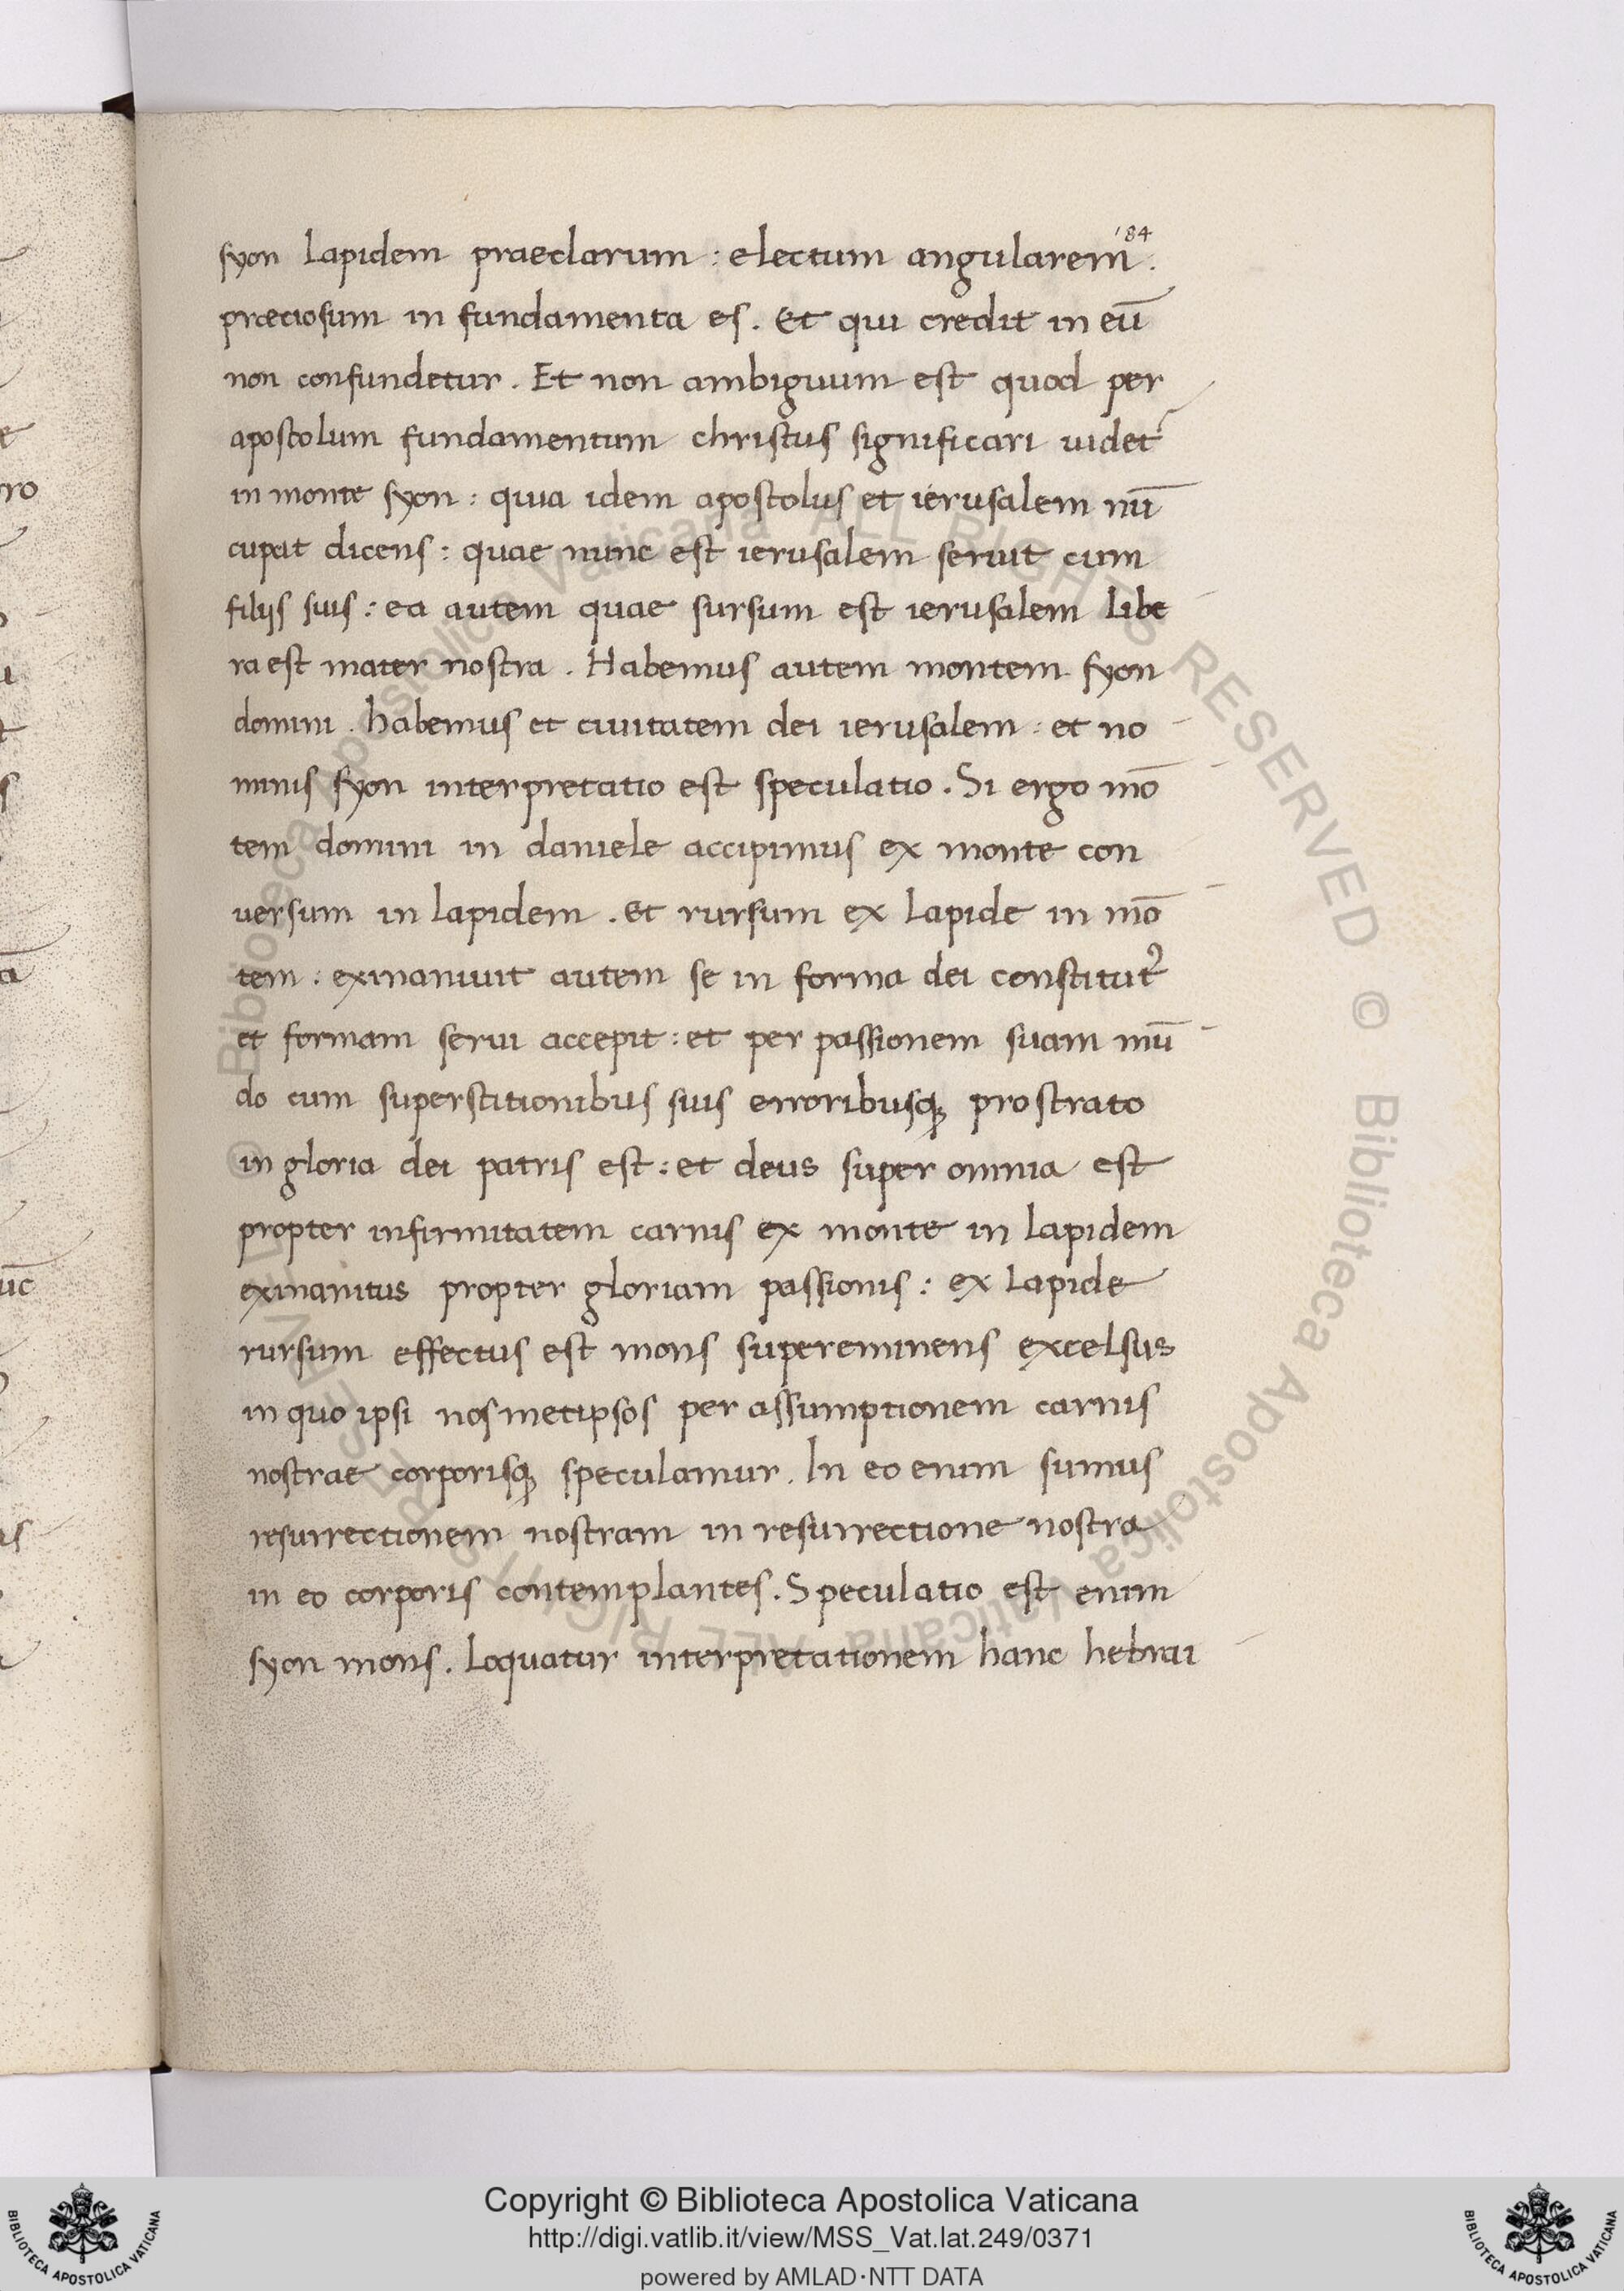 184
syon lapidem praeclarum : electum angularem .
præciosum in fundamenta es . Et qui credit in eū
non confundetur . Et non ambiguum est quod per
apostolum fundamentum christus significari uidet᷑
in monte syon : quia idem apostolus et ierusalem nū
cupat dicens : quae nunc est ierusalem seruit cum
filijs suis : ea autem quae sursum est ierusalem libe
ra est mater nostra . Habemus autem montem syon
domini . habemus et ciuitatem dei ierusalem : et no
minis syon interpretatio est speculatio . Si ergo mō
tem domini in daniele accipimus ex monte con
uersum in lapidem . et rursum ex lapide in mō
tem : exinaniuit autem se in forma dei constitutꝰ
et formam serui accepit : et per passionem suam mū
do cum superstitionibus suis erroribusqꝫ prostrato
in gloria dei patris est : et deus super omnia est
propter infirmitatem carnis ex monte in lapidem
exinanitus propter gloriam passionis : ex lapide
rursum effectus est mons supereminens excelsus
in quo ipsi nosmetipsos per assumptionem carnis
nostrae corporisqꝫ speculamur . In eo enim sumus
resurrectionem nostram in resurrectione nostra
in eo corporis contemplantes . Speculatio est enim
syon mons . Loquatur interpretationem hanc hebrai
© Biblioteca Apostolica Vaticana ALL RIGHTS RESERVED © Biblioteca Apostolica Vaticana ALL RIGHTS RESERVED
Copyright © Biblioteca Apostolica Vaticana
http://digi.vatlib.it/view/MSS_Vat.lat.249/0371
powered by AMLAD·NTT DATA
BIBLIOTECA APOSTOLICA VATICANA
BIBLIOTECA APOSTOLICA VATICANA